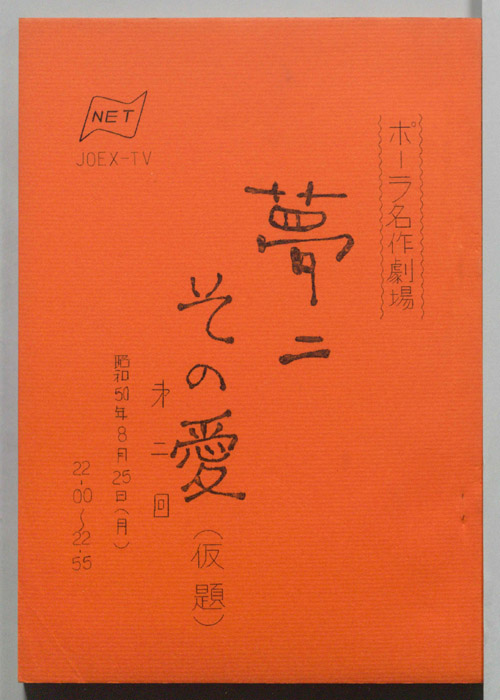 ポーラ名作劇場
夢二
その愛
(仮題)
第二回
昭和50年8月25日(月)
22-00~22.55
NET
JOEX-TV